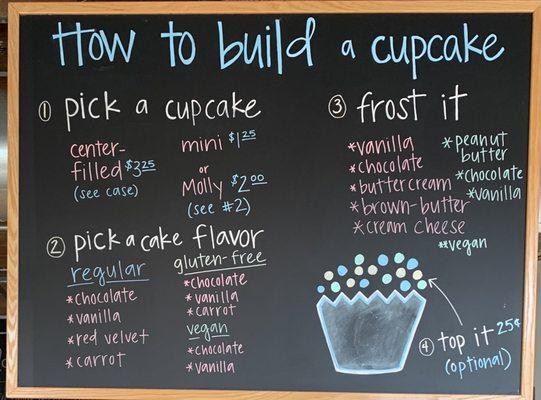 How to build a cupcake
① pick a cupcake
center-
filled $3.25
(see case)
mini $1.25
or
Molly $2.00
(see #2)
② pick a cake flavor
regular
*chocolate
*vanilla
*red velvet
*carrot
gluten-free
*chocolate
*vanilla
*carrot
vegan
*chocolate
*vanilla
③ frost it
*vanilla
*chocolate
*buttercream
*brown-butter
*cream cheese
*peanut
butter
*chocolate
*vanilla
**vegan
④ top it 25¢
(optional)